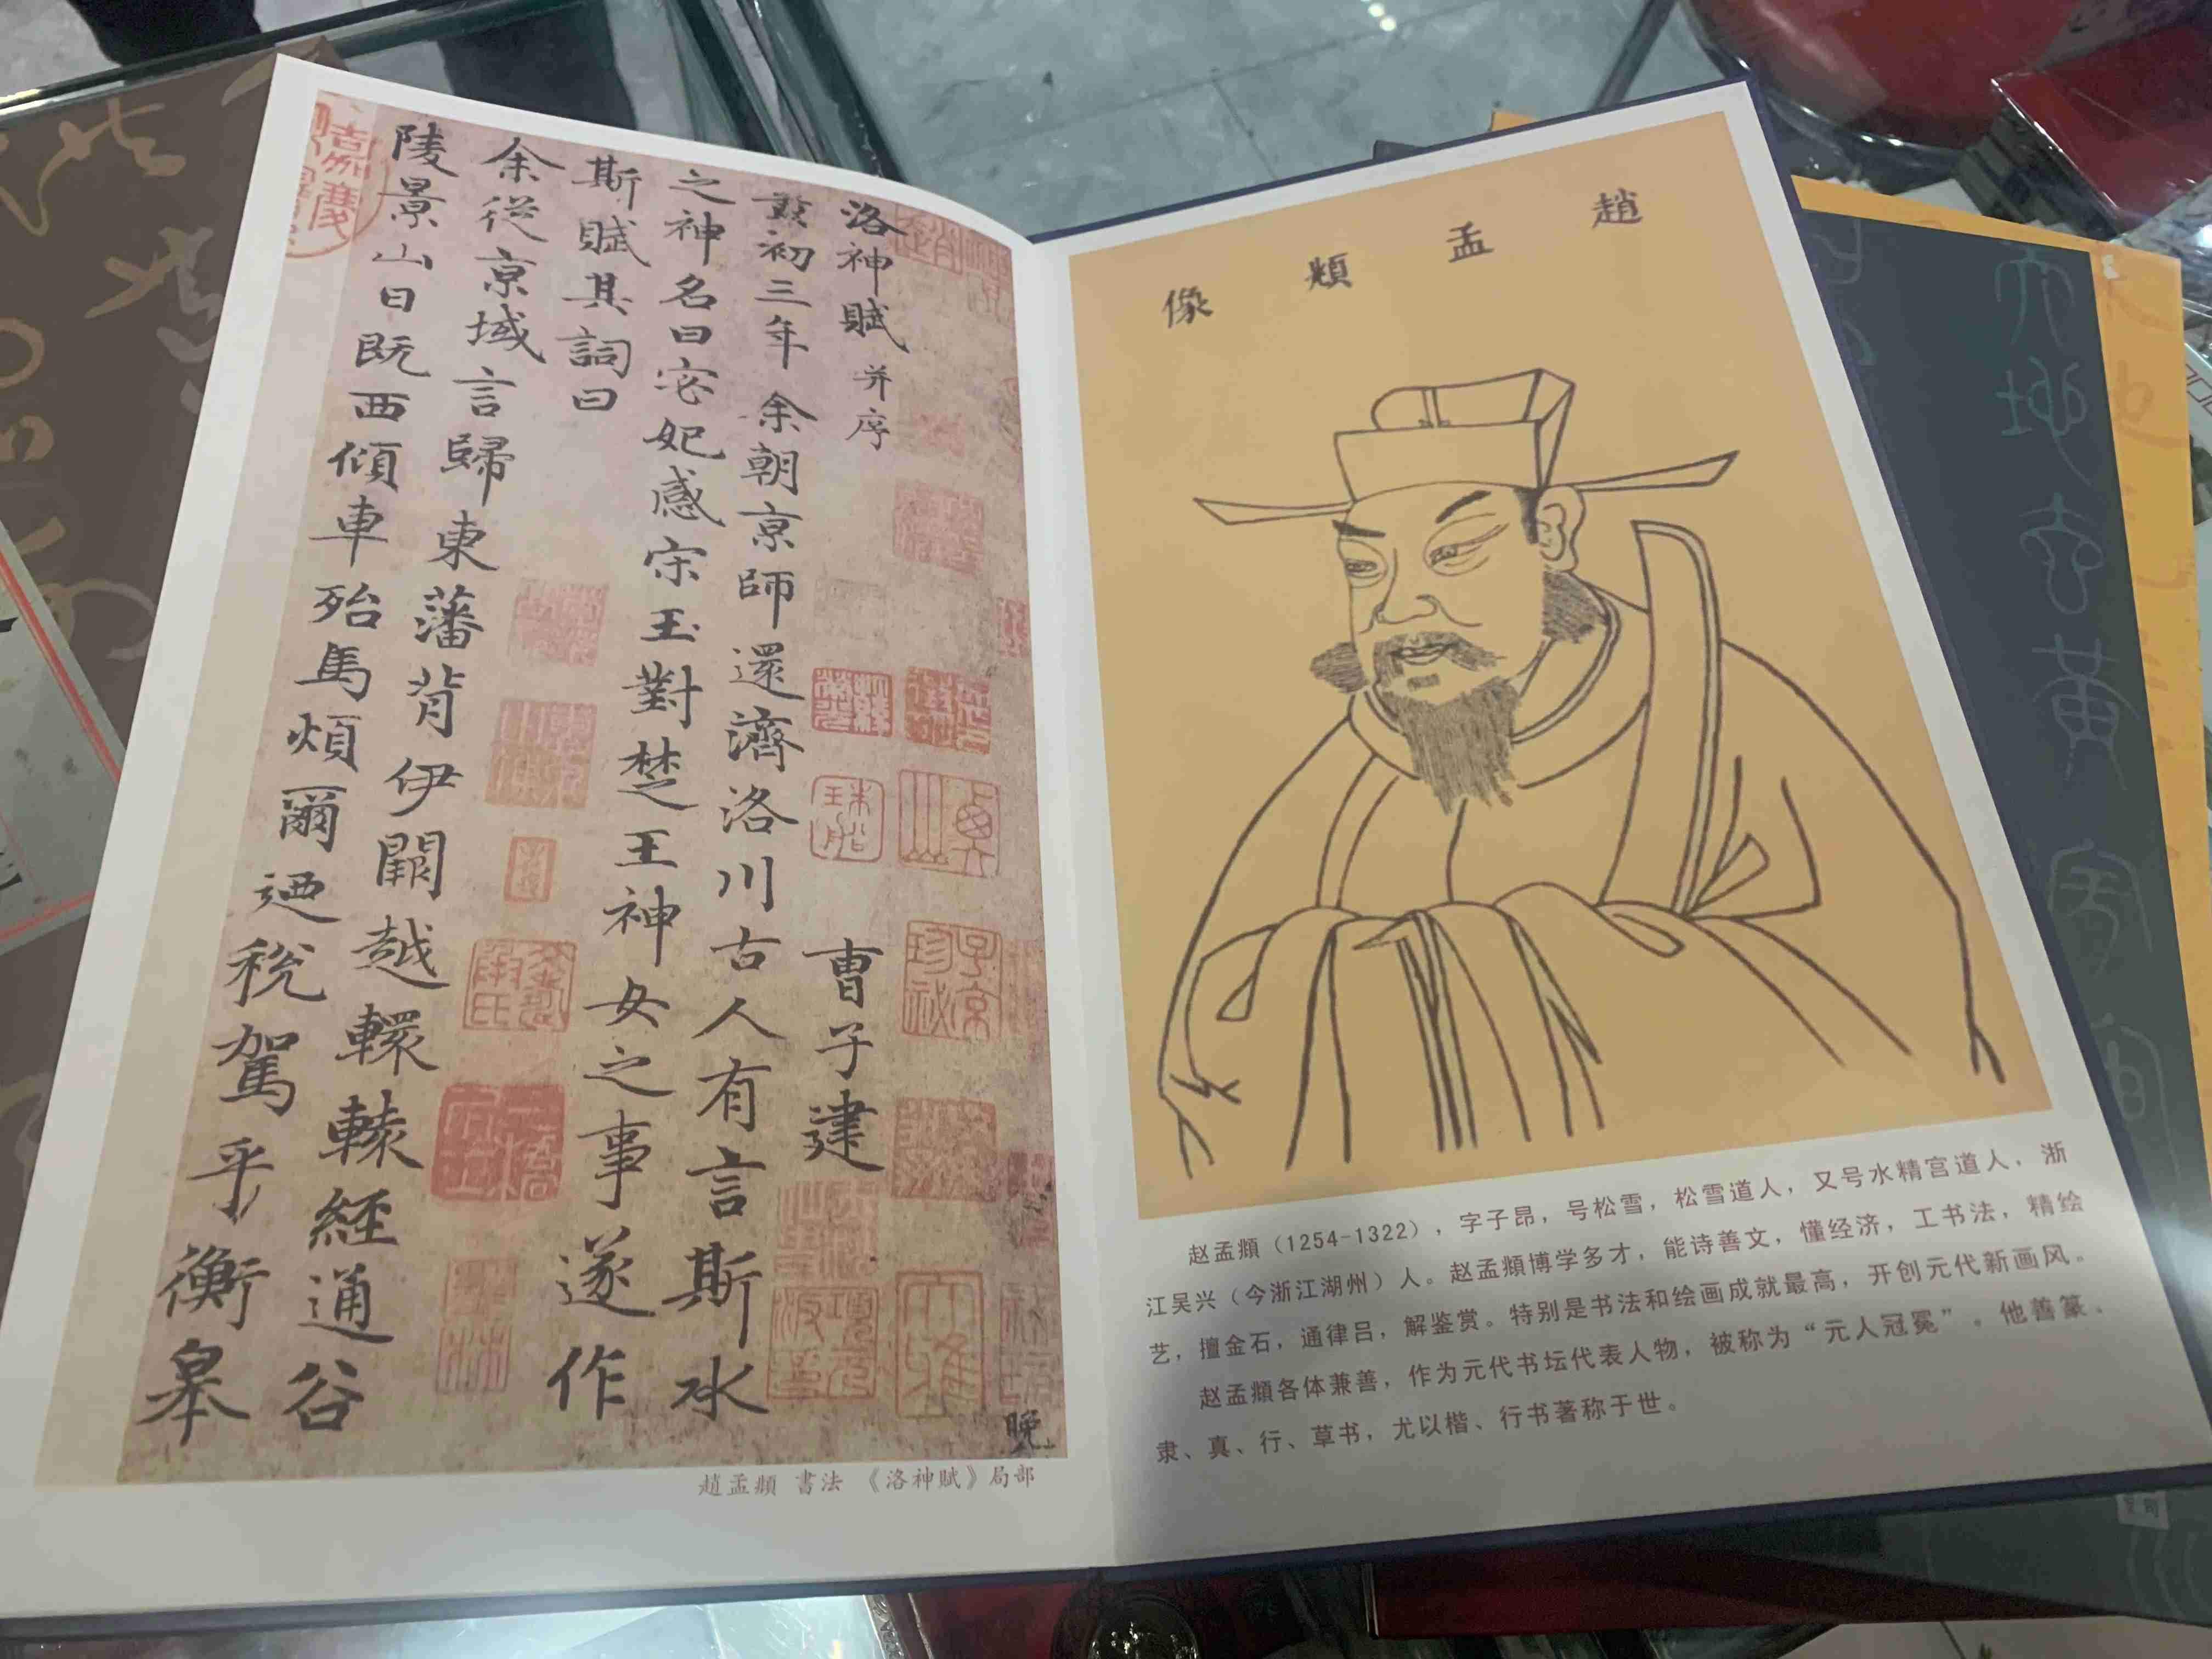 洛神賦 并序
曹子建
黃初三年余朝京師還濟洛川古人有言斯水
之神名曰宓妃感宋玉對楚王神女之事遂作
斯賦其詞曰
余從京域言歸東藩背伊闕越轘轅經通谷
陵景山日既西傾車殆馬煩爾迺稅駕乎衡皋
晚
趙孟頫 書法 《洛神賦》局部
趙孟頫像
赵孟頫（1254-1322），字子昂，号松雪，松雪道人，又号水精宫道人，浙
江吴兴（今浙江湖州）人。赵孟頫博学多才，能诗善文，懂经济，工书法，精绘
艺，擅金石，通律吕，解鉴赏。特别是书法和绘画成就最高，开创元代新画风。
赵孟頫各体兼善，作为元代书坛代表人物，被称为“元人冠冕”。他善篆、
隶、真、行、草书，尤以楷、行书著称于世。
天地玄黃
宇宙
子京
珍祕